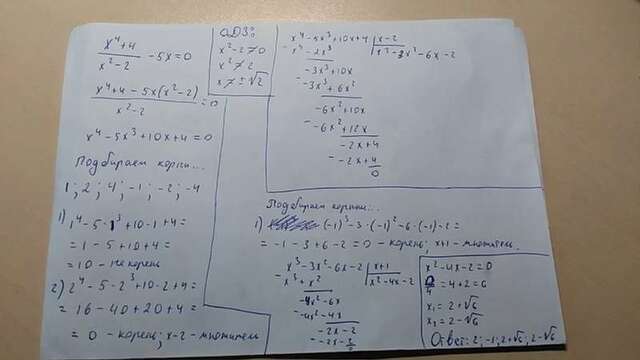 x⁴+4 / x²-2 - 5x = 0
x⁴+4-5x(x²-2) / x²-2 = 0
x⁴-5x³+10x+4=0
Подбираем корни...
1; 2; 4; -1; -2; -4
1) 1⁴-5·1³+10·1+4=
=1-5+10+4=
=10 - не корень
2) 2⁴-5·2³+10·2+4=
=16-40+20+4=
=0 - корень; x-2 - множитель
ОДЗ:
x²-2≠0
x²≠2
x≠±√2
x⁴-5x³+10x+4 | x-2
- x⁴-2x³ | x³-3x²-6x-2
-3x³+10x
- -3x³+6x²
-6x²+10x
- -6x²+12x
-2x+4
- -2x+4
0
Подбираем корни...
1) (-1)³-3·(-1)²-6·(-1)-2=
=-1-3+6-2=0 - корень; x+1 - множитель.
x³-3x²-6x-2 | x+1
- x³+x² | x²-4x-2
-4x²-6x
- -4x²-4x
-2x-2
- -2x-2
0
x²-4x-2=0
D/4=4+2=6
x₁=2+√6
x₂=2-√6
Ответ: 2; -1; 2+√6; 2-√6